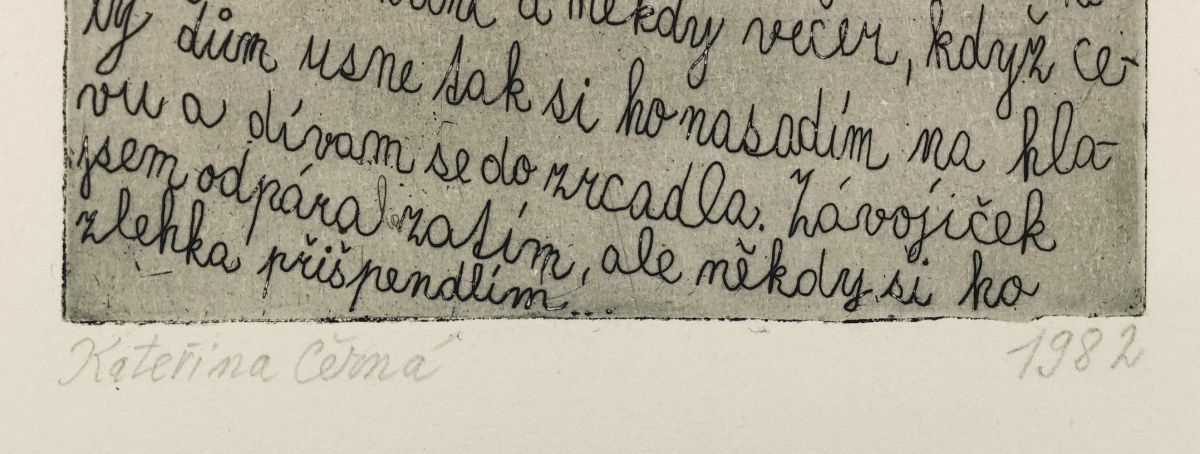 a někdy večer, když ce-
lý dům usne tak si ho nasadím na hla-
vu a dívam se do zrcadla. Závojíček
jsem odpárala zatím, ale někdy si ho
zlehka přišpendlím...
Kateřina Černá 1982